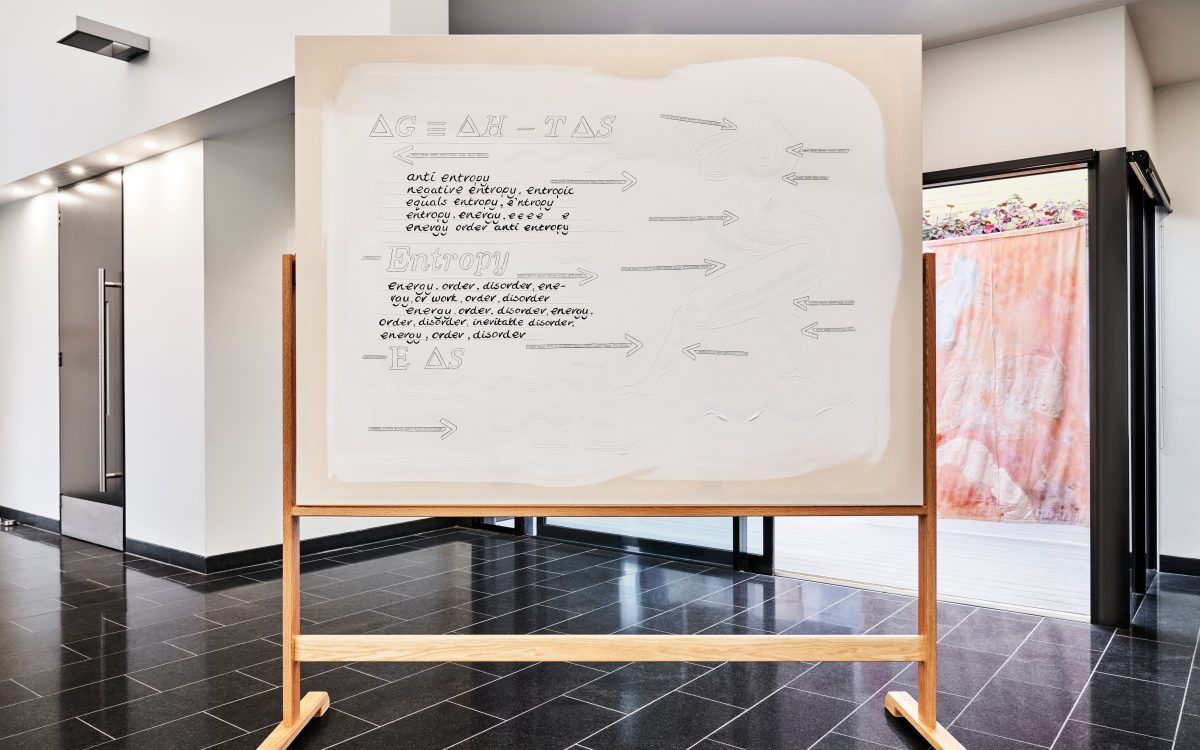 ΔG ≡ ΔH – T ΔS
anti entropy
negative entropy, entropic
equals entropy, e'ntropy
entropy. energy, e e e e e
energy order anti entropy
– Entropy
energy, order, disorder, ene-
rgy, or work, order, disorder
energy. order. disorder, energy,
Order, disorder, inevitable disorder.
energy, order, disorder
– E ΔS